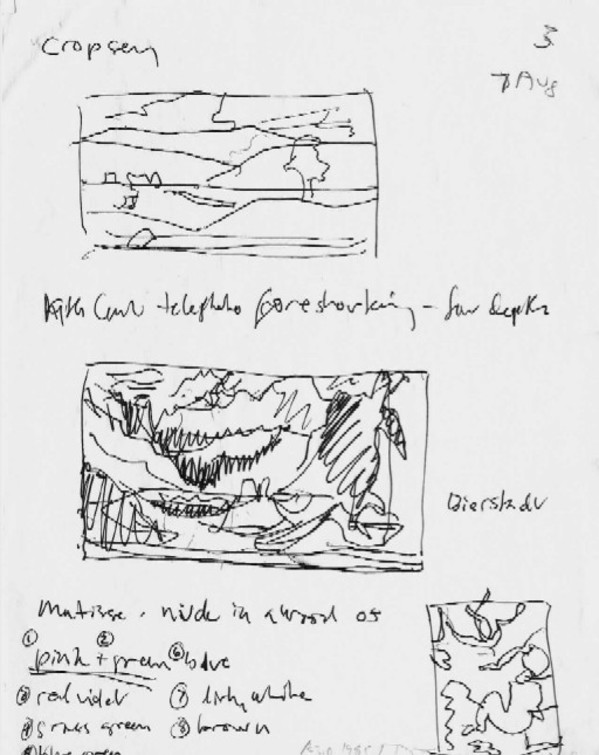 Cropsey
3
7 Aug
telephoto foreshortening - for depth
Bierstadt
Matisse. nude in a wood 05
① ②
pink + green ⑥ blue
③ red violet ⑦ light white
④ grass green ⑧ brown